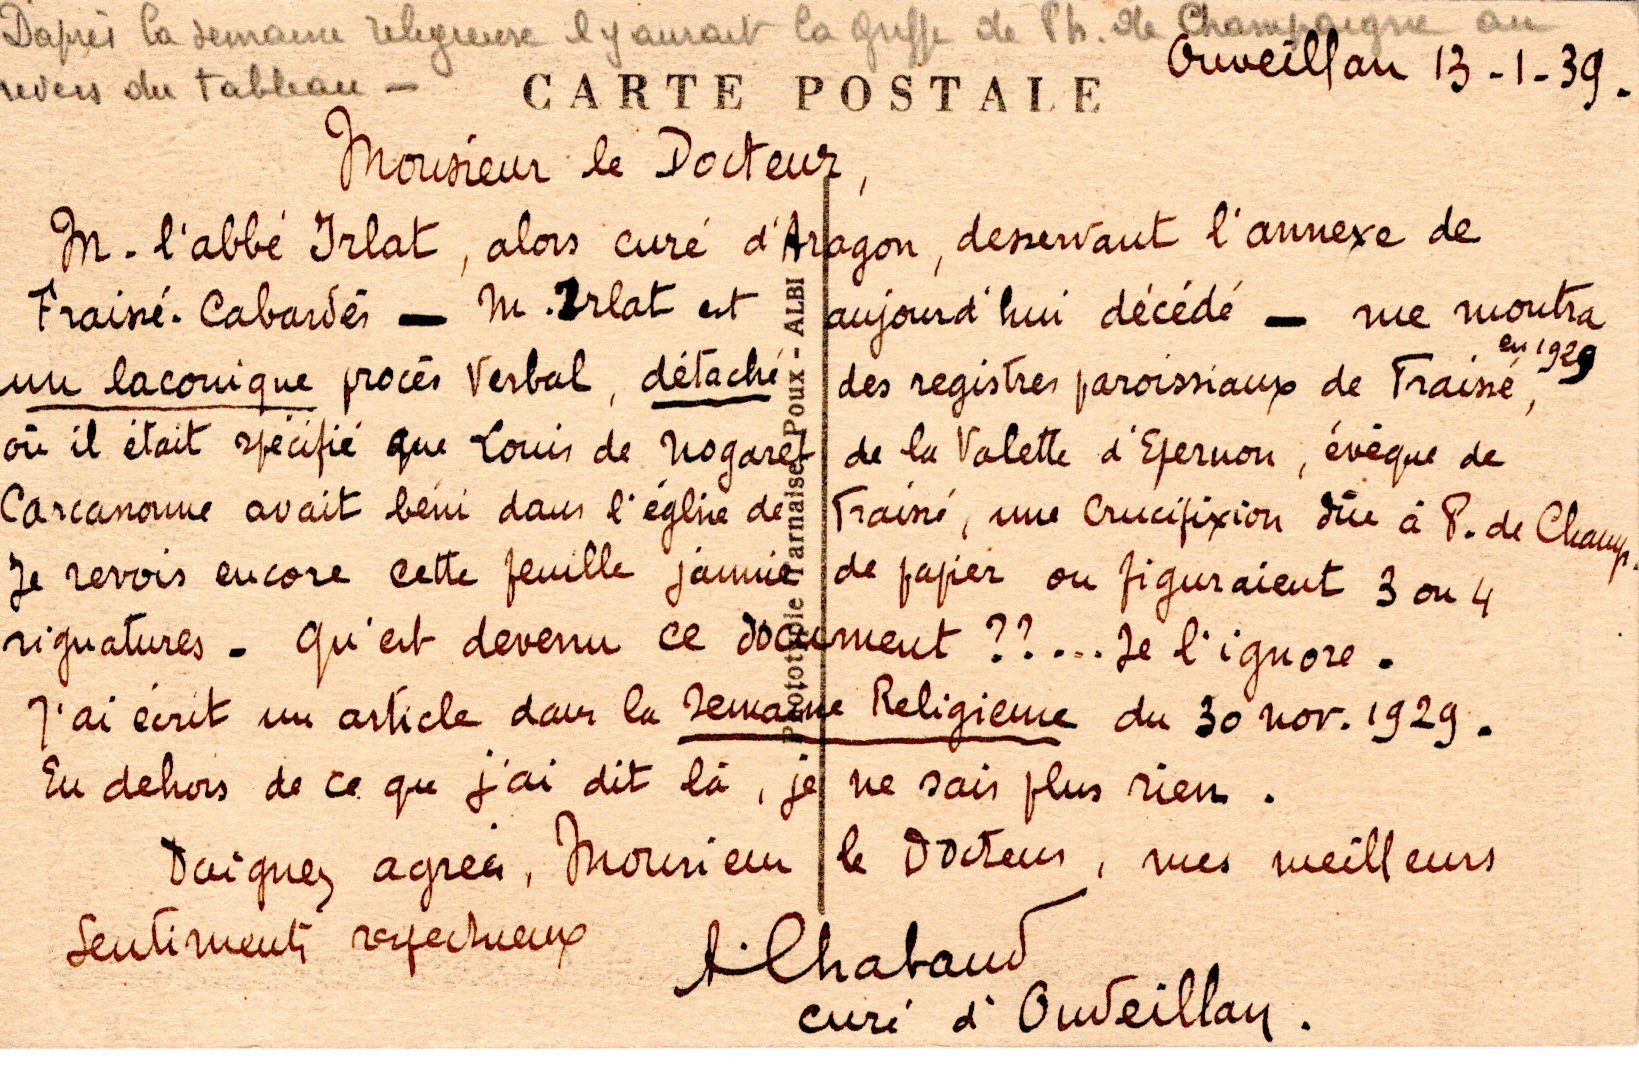 Daprès la semaine religieuse il y aurait la griffe de Ph. de Champaigne au
revers du tableau —
CARTE POSTALE
Ouveillan 13-1-39.
Monsieur le Docteur,
M. l'abbé Irlat, alors curé d'Aragon, desservant l'annexe de
Fraissé-Cabardès — M. Irlat est aujourd'hui décédé — me montra
en 1929
un laconique procès verbal, détaché des registres paroissiaux de Fraissé,
où il était spécifié que Louis de Nogaret de la Valette d'Epernon, évêque de
Carcassonne avait béni dans l'église de Fraissé, une Crucifixion dûe à P. de Champ.
Je revois encore cette feuille jaunie de papier ou figuraient 3 ou 4
signatures - Qu'est devenu ce document ??... Je l'ignore.
J'ai écrit un article dans la Semaine Religieuse du 30 nov. 1929.
En dehors de ce que j'ai dit là, je ne sais plus rien.
Daignez agréer, Monsieur le Docteur, mes meilleurs
Sentiments respectueux
A. Chabaud
curé d'Ouveillan.
Phototypie Tarnaise Poux - ALBI